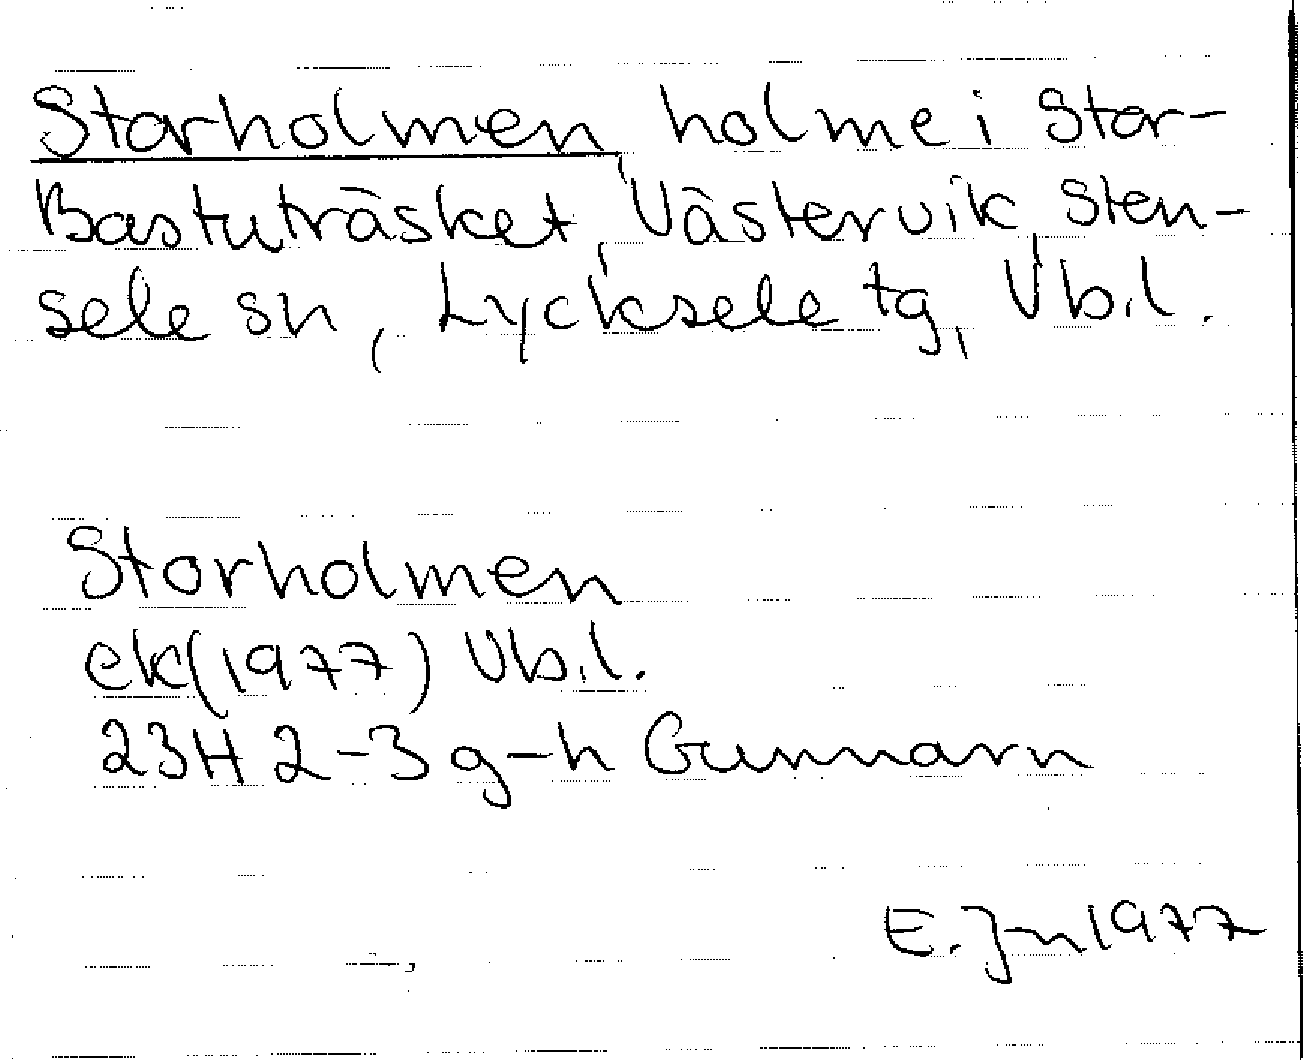 Storholmen, holme i Stor-
Bastuträsket, Västervik, Sten-
sele sn, Lycksele tg, Vb.l.
Storholmen
ek(1977) Vb.l.
23H 2-3 g-h Gunnarn
E. J-n 1977